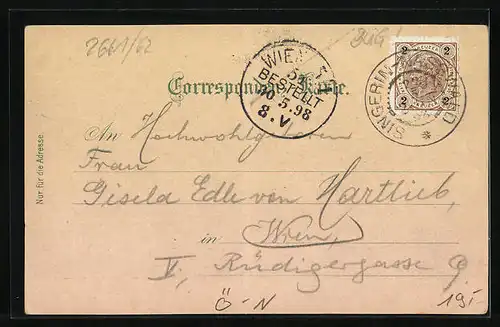 2661/62
WIEN
53
BESTELLT
20.5.98
8.V
SINGERIN
2 2
2 2
Correspondenz-Karte.
An Hochwohlgeboren
Frau
Gisela Edle von Hartlieb
in Wien
V, Rüdigergasse 9
Nur für die Adresse.
Ö-N
19.-